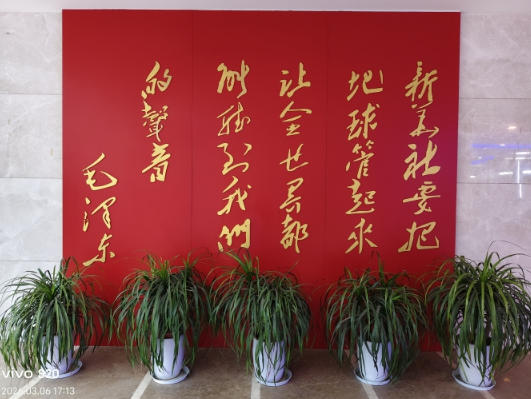 新华社要把
地球管起来
让全世界都
能听到我們
的聲音
毛泽东
vivo S20
2026.03.06 17:13